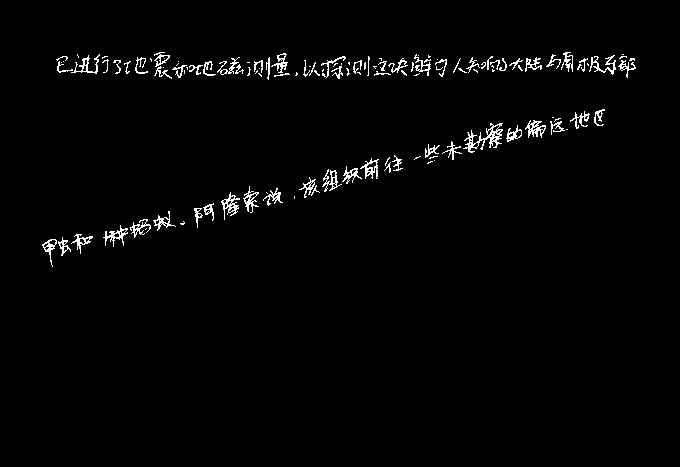 已进行了地震和地磁测量,以探测这块鲜为人知的大陆与南极东部
甲虫和1种蚂蚁。阿隆索说,该组织前往一些未勘察的偏远地区